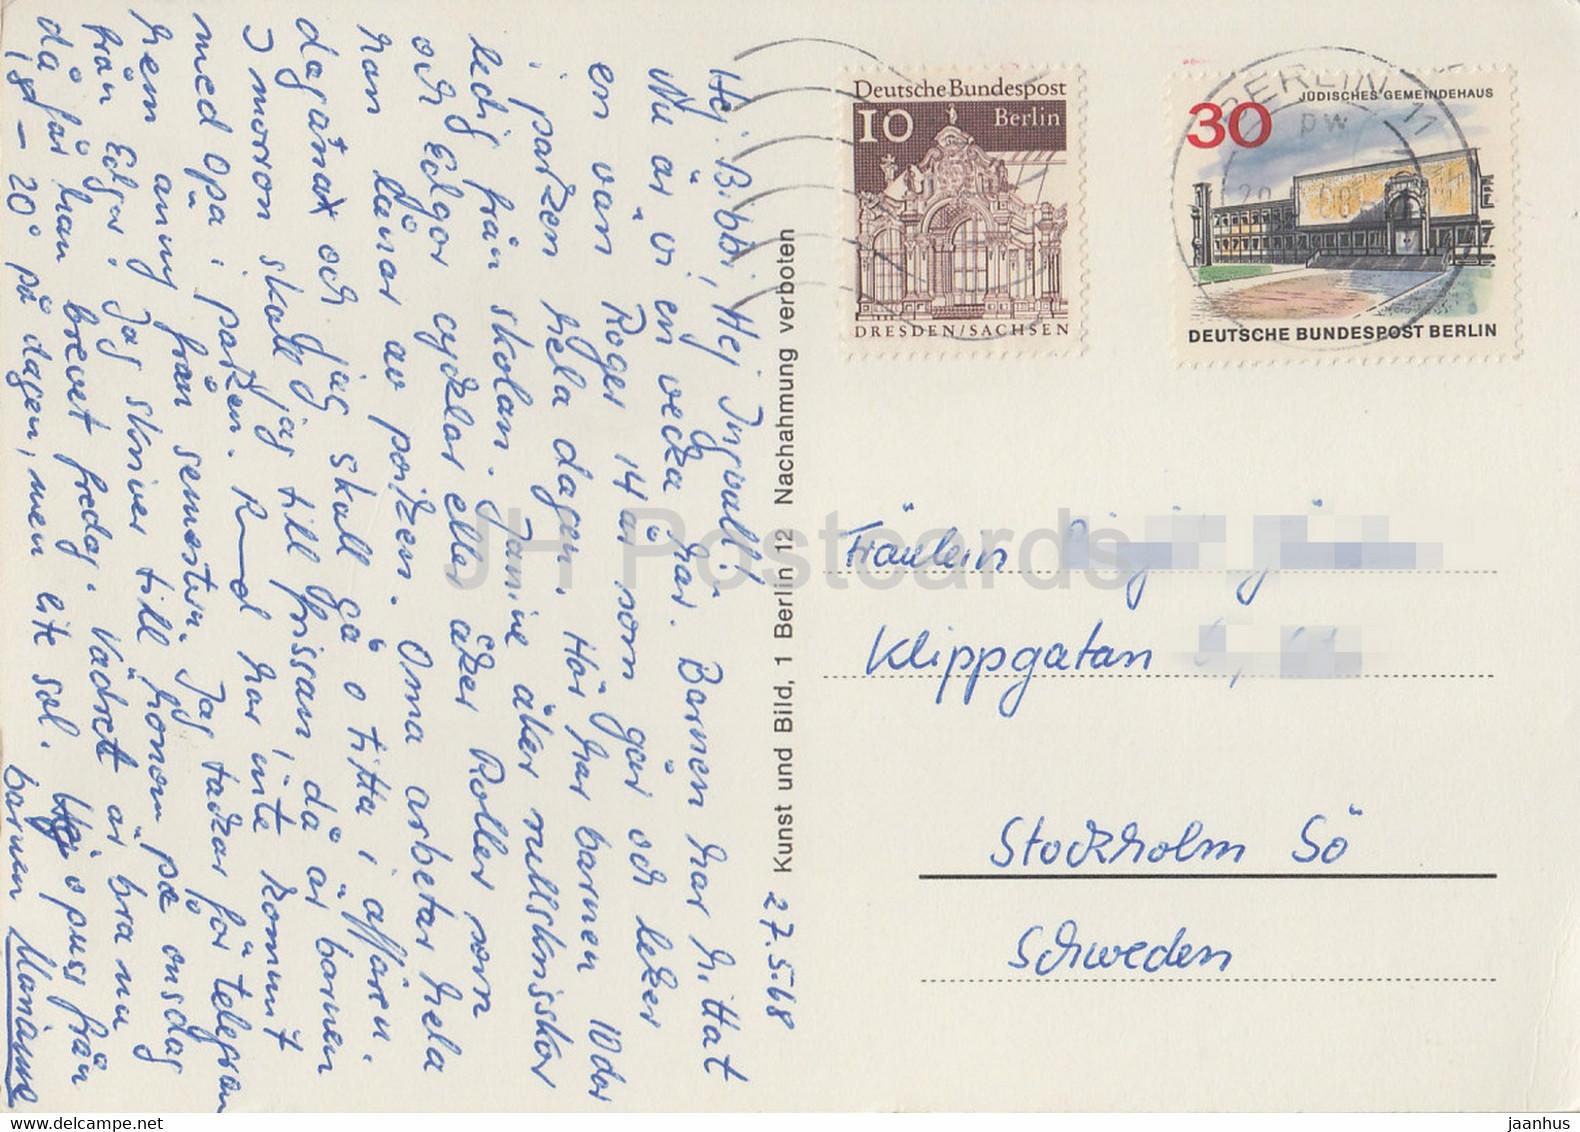 27.5.68
Hej Bibbi, Hej Ingvall!
Nu är vi en vecka här. Barnen har hittat
en vän Roger 14 år som går och leker
i parken hela dagen. Här har barnen 10 dar
ledig från skolan. Janine åker rullskridskor
och Edgor cyklar eller åker Roller som
han lånar av pojken. Oma arbetar hela
dagarna och jag skall gå o titta i affären.
I morron skall jag till frissan, då är barnen
med Opa i parken. R har inte kommit
hem ännu från semestern. Jag tackar för telegram
från Edgar. Jag skriver till honom på onsdag
då får han brevet fredag. Vädret är bra nu
18–20° på dagen, men lite sol. Hej o puss från
barnen Mamma
Kunst und Bild, 1 Berlin 12 Nachahmung verboten
Deutsche Bundespost
10 Berlin
DRESDEN/SACHSEN
BERLIN 11
pw
JÜDISCHES GEMEINDEHAUS
30
DEUTSCHE BUNDESPOST BERLIN
Fräulein
Klippgatan
Stockholm Sö
Schweden
JH Postcards
jaanhus
www.delcampe.net